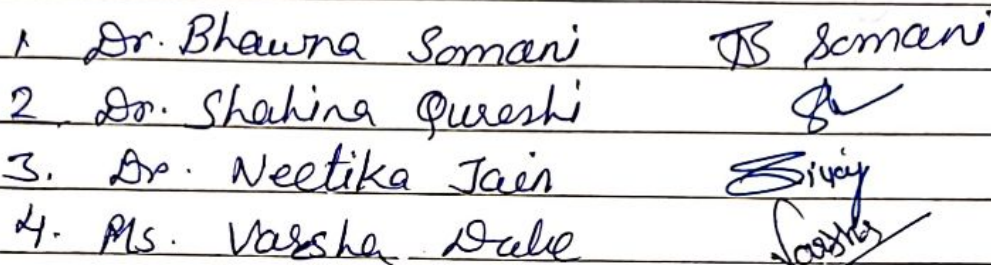 1 Dr. Bhawna Somani BSomani
2. Dr. Shahina Qureshi
3. Dr. Neetika Jain
4. Ms. Varsha Dube Varsha